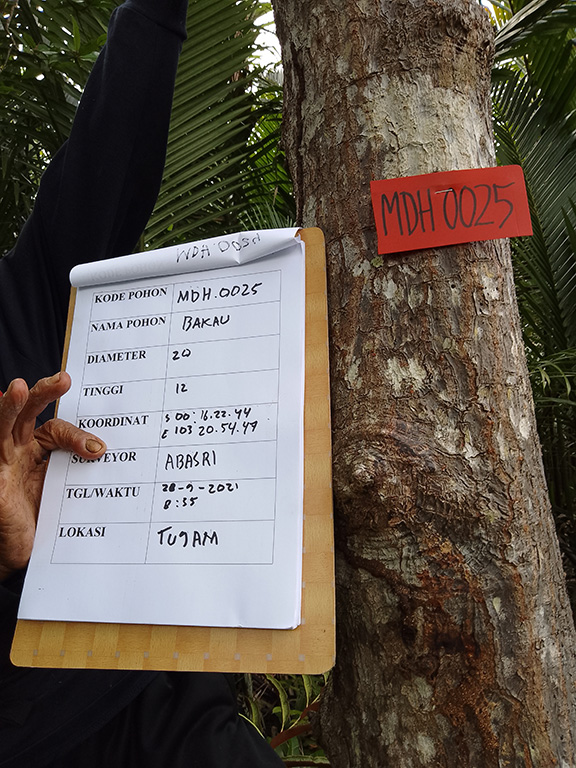 MDH 0025
KODE POHON MDH.0025
NAMA POHON BAKAU
DIAMETER 20
TINGGI 12
KOORDINAT S 00° 16.22.44
E 103 20.54.47
SURVEYOR ABASRI
TGL/WAKTU 28-9-2021
8:35
LOKASI TUJAM